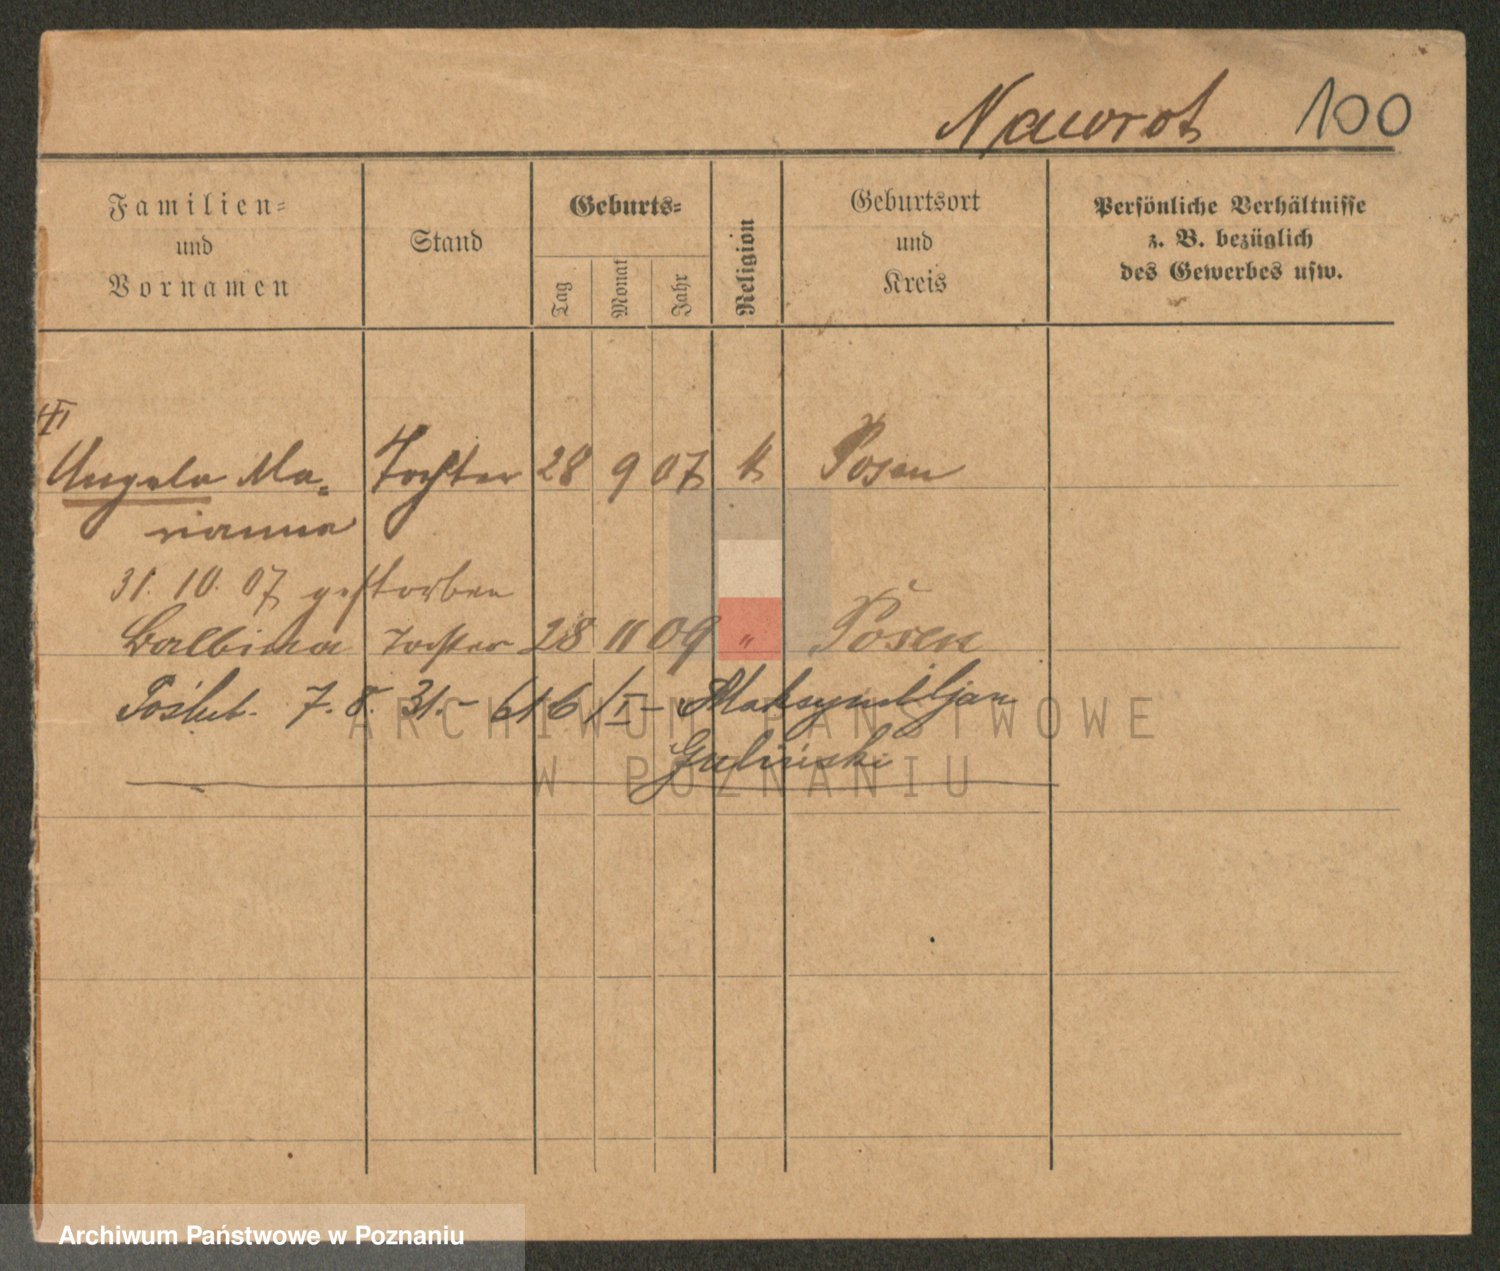 Nawrot 100
Familien- und Vornamen
Stand
Geburts-
Tag
Monat
Jahr
Religion
Geburtsort und Kreis
Persönliche Verhältnisse
z. B. bezüglich
des Gewerbes usw.
Angela Ma- Tochter 28 9 07 k Posen
rianna
31. 10. 07 gestorben
Balbina Tochter 28 11 09 " Posen
Poślub. 7. 8. 31. – 616/I – Maksymiljan
Guliński
ARCHIWUM PAŃSTWOWE
W POZNANIU
Archiwum Państwowe w Poznaniu